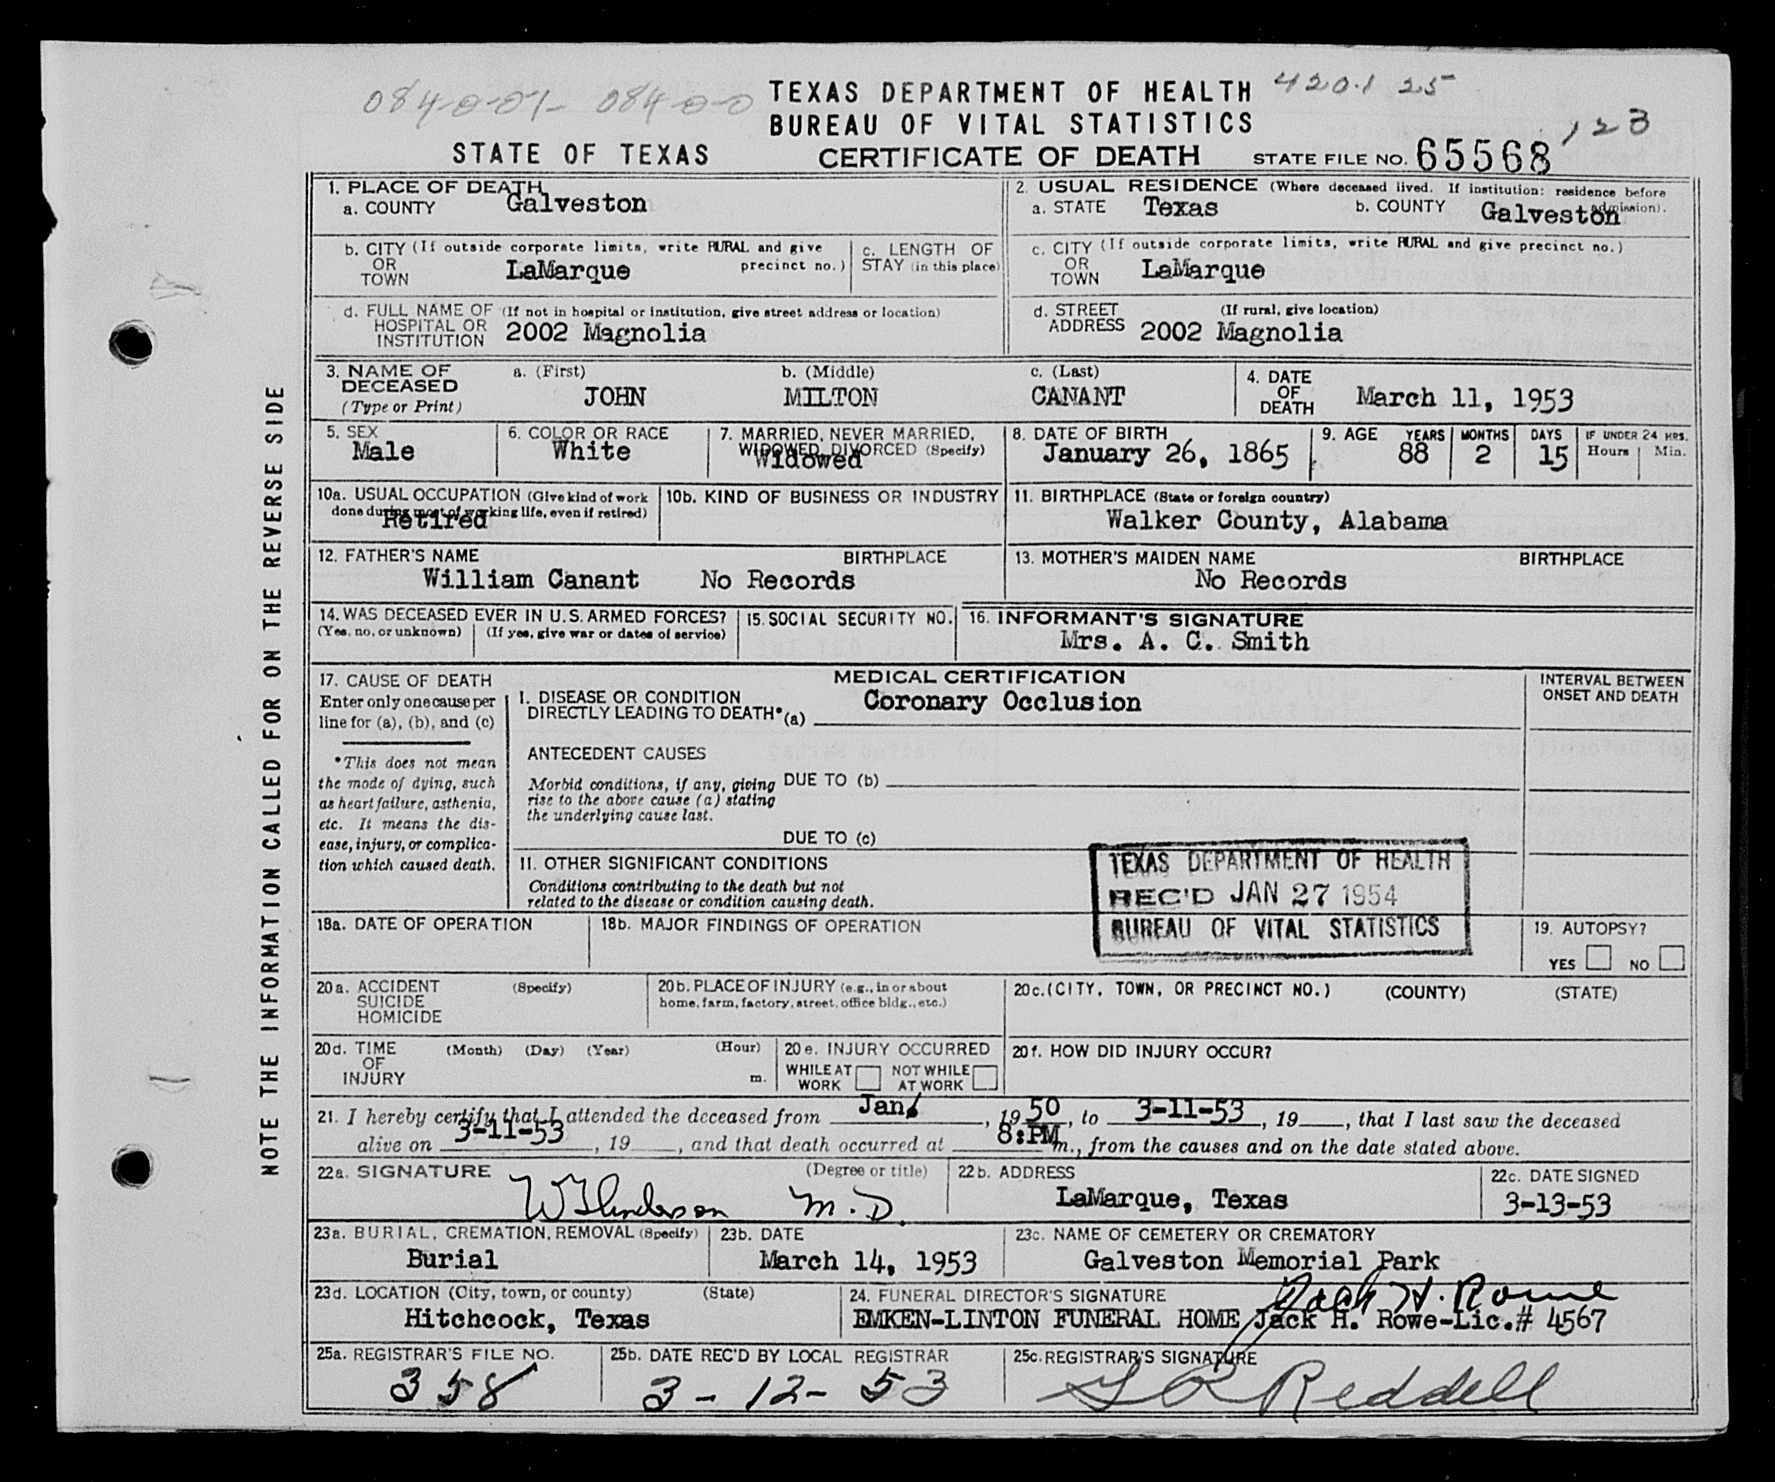 084-0-01- 084-0-0
TEXAS DEPARTMENT OF HEALTH 420.1 25
BUREAU OF VITAL STATISTICS
123
STATE OF TEXAS CERTIFICATE OF DEATH STATE FILE NO. 65568
1. PLACE OF DEATH
a. COUNTY Galveston
2. USUAL RESIDENCE (Where deceased lived. If institution: residence before admission).
a. STATE Texas b. COUNTY Galveston
b. CITY (If outside corporate limits, write RURAL and give precinct no.)
OR
TOWN LaMarque
c. LENGTH OF
STAY (in this place)
c. CITY (If outside corporate limits, write RURAL and give precinct no.)
OR
TOWN LaMarque
d. FULL NAME OF (If not in hospital or institution, give street address or location)
HOSPITAL OR
INSTITUTION 2002 Magnolia
d. STREET (If rural, give location)
ADDRESS 2002 Magnolia
3. NAME OF
DECEASED
(Type or Print)
a. (First) JOHN
b. (Middle) MILTON
c. (Last) CANANT
4. DATE
OF
DEATH March 11, 1953
5. SEX
Male
6. COLOR OR RACE
White
7. MARRIED, NEVER MARRIED,
WIDOWED, DIVORCED (Specify)
Widowed
8. DATE OF BIRTH
January 26, 1865
9. AGE YEARS MONTHS DAYS IF UNDER 24 HRS.
88 2 15 Hours Min.
10a. USUAL OCCUPATION (Give kind of work
done during most of working life, even if retired)
Retired
10b. KIND OF BUSINESS OR INDUSTRY
11. BIRTHPLACE (State or foreign country)
Walker County, Alabama
12. FATHER'S NAME BIRTHPLACE
William Canant No Records
13. MOTHER'S MAIDEN NAME BIRTHPLACE
No Records
14. WAS DECEASED EVER IN U.S. ARMED FORCES?
(Yes, no, or unknown) (If yes, give war or dates of service)
15. SOCIAL SECURITY NO.
16. INFORMANT'S SIGNATURE
Mrs. A. C. Smith
17. CAUSE OF DEATH
Enter only one cause per
line for (a), (b), and (c)
*This does not mean
the mode of dying, such
as heart failure, asthenia,
etc. It means the dis-
ease, injury, or complica-
tion which caused death.
MEDICAL CERTIFICATION
I. DISEASE OR CONDITION
DIRECTLY LEADING TO DEATH* (a) Coronary Occlusion
ANTECEDENT CAUSES
Morbid conditions, if any, giving
rise to the above cause (a) stating
the underlying cause last.
DUE TO (b)
DUE TO (c)
II. OTHER SIGNIFICANT CONDITIONS
Conditions contributing to the death but not
related to the disease or condition causing death.
INTERVAL BETWEEN
ONSET AND DEATH
TEXAS DEPARTMENT OF HEALTH
REC'D JAN 27 1954
BUREAU OF VITAL STATISTICS
18a. DATE OF OPERATION
18b. MAJOR FINDINGS OF OPERATION
19. AUTOPSY?
YES NO
20a. ACCIDENT (Specify)
SUICIDE
HOMICIDE
20b. PLACE OF INJURY (e.g., in or about
home, farm, factory, street, office bldg., etc.)
20c. (CITY, TOWN, OR PRECINCT NO.) (COUNTY) (STATE)
20d. TIME (Month) (Day) (Year) (Hour)
OF
INJURY m.
20e. INJURY OCCURRED
WHILE AT WORK NOT WHILE AT WORK
20f. HOW DID INJURY OCCUR?
21. I hereby certify that I attended the deceased from Jan. , 1950, to 3-11-53, 19 , that I last saw the deceased
alive on 3-11-53, 19 , and that death occurred at 8:PM m., from the causes and on the date stated above.
22a. SIGNATURE (Degree or title)
M.D.
22b. ADDRESS
LaMarque, Texas
22c. DATE SIGNED
3-13-53
23a. BURIAL, CREMATION, REMOVAL (Specify)
Burial
23b. DATE
March 14, 1953
23c. NAME OF CEMETERY OR CREMATORY
Galveston Memorial Park
23d. LOCATION (City, town, or county) (State)
Hitchcock, Texas
24. FUNERAL DIRECTOR'S SIGNATURE Jack H. Rowe
EMKEN-LINTON FUNERAL HOME Jack H. Rowe-Lic.# 4567
25a. REGISTRAR'S FILE NO.
358
25b. DATE REC'D BY LOCAL REGISTRAR
3-12-53
25c. REGISTRAR'S SIGNATURE
Reddell
NOTE THE INFORMATION CALLED FOR ON THE REVERSE SIDE